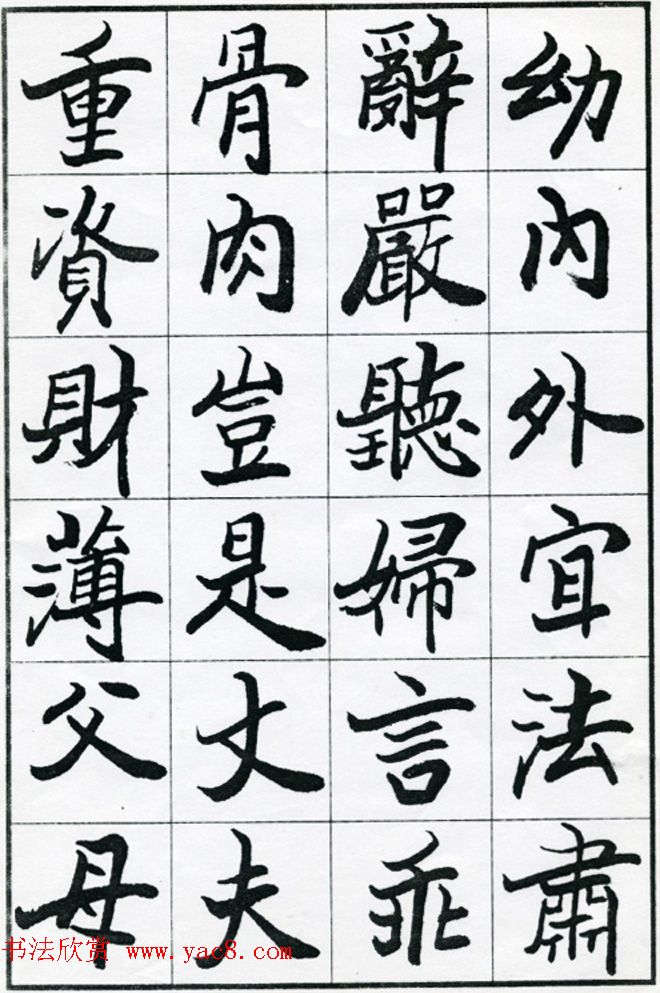 幼內外宜法肅
辭嚴聽婦言乖
骨肉豈是丈夫
重資財薄父母
书法欣赏 www.yac8.com